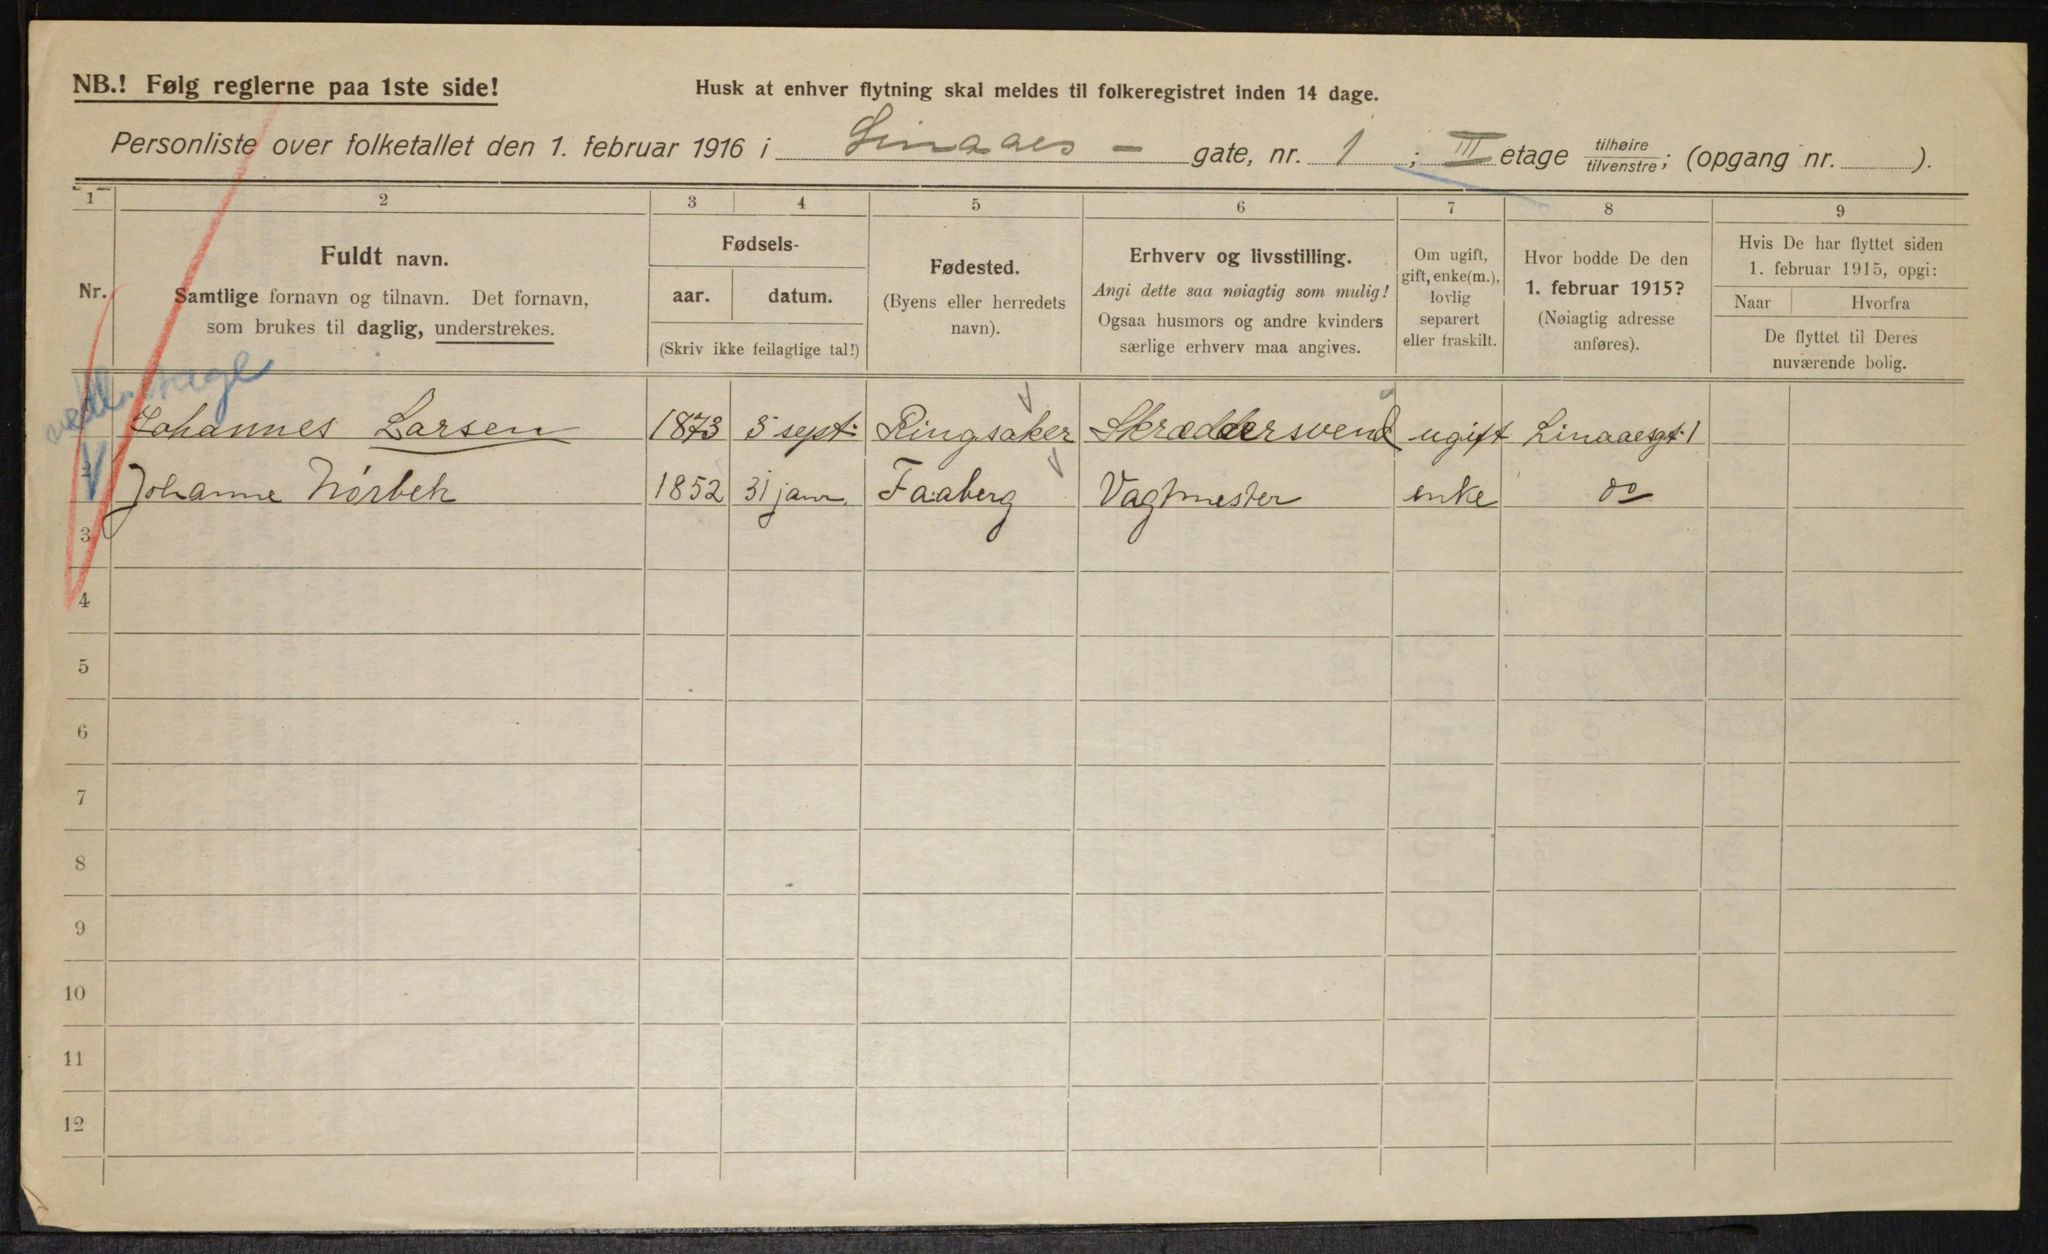 NB.! Følg reglerne paa 1ste side!
Husk at enhver flytning skal meldes til folkeregistret inden 14 dage.
Personliste over folketallet den 1. februar 1916 i Linaaes - gate, nr. 1 ; III etage tilhøire/tilvenstre; (opgang nr. ).
1 2 3 4 5 6 7 8 9
Nr.
Fuldt navn.
Samtlige fornavn og tilnavn. Det fornavn,
som brukes til daglig, understrekes.
Fødsels-
aar. datum.
(Skriv ikke feilagtige tal!)
Fødested.
(Byens eller herredets
navn).
Erhverv og livsstilling.
Angi dette saa nøiagtig som mulig!
Ogsaa husmors og andre kvinders
særlige erhverv maa angives.
Om ugift,
gift, enke(m.),
lovlig
separert
eller fraskilt.
Hvor bodde De den
1. februar 1915?
(Nøiagtig adresse
anføres).
Hvis De har flyttet siden
1. februar 1915, opgi:
Naar Hvorfra
De flyttet til Deres
nuværende bolig.
Johannes Larsen 1873 5 sept: Ringsaker Skræddersvend ugift Linaaesgt. 1
2 Johanne Nórbek 1852 31 janr. Faaberg Vagtmester enke do
3
4
5
6
7
8
9
10
11
12